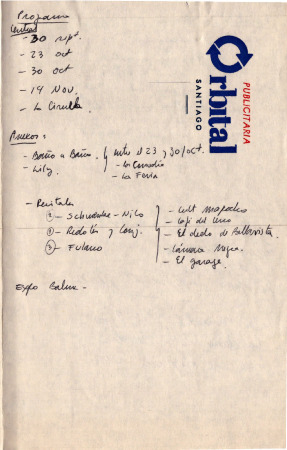 Programa
Central
- 30 sept.
- 23 oct
- 30 oct
- 14 Nov.
- La Cirulla
PUBLICITARIA
Orbital
SANTIAGO
Anexos:
- Baño a Baño
- Lily
entre el 23 y 30/oct.
- La Comedia
- La Feria
- Recitales
- Schneeatke - Nilo
① - Redolés y Conj.
③ - Fulano
- Cult Mapocho
- Café del Cerro
- El dedo de Bellavista
- Cámara Negra.
- El garage.
Expo Balm -